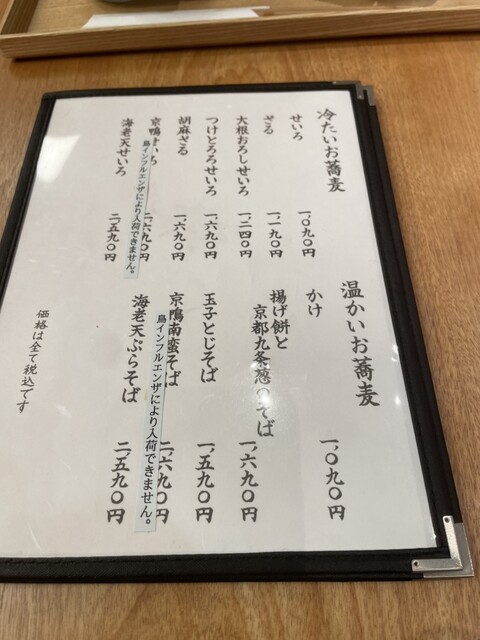 冷たいお蕎麦
せいろ 一、〇九〇円
ざる 一、一九〇円
大根おろしせいろ 一、二四〇円
つけとろろせいろ 一、六九〇円
胡麻ざる 一、六九〇円
京鴨せいろ 二、六九〇円
鳥インフルエンザにより入荷できません。
海老天せいろ 二、五九〇円
温かいお蕎麦
かけ 一、〇九〇円
揚げ餅と
京都九条葱のそば 一、六九〇円
玉子とじそば 一、五九〇円
京鴨南蛮そば 二、六九〇円
鳥インフルエンザにより入荷できません。
海老天ぷらそば 二、五九〇円
価格は全て税込です